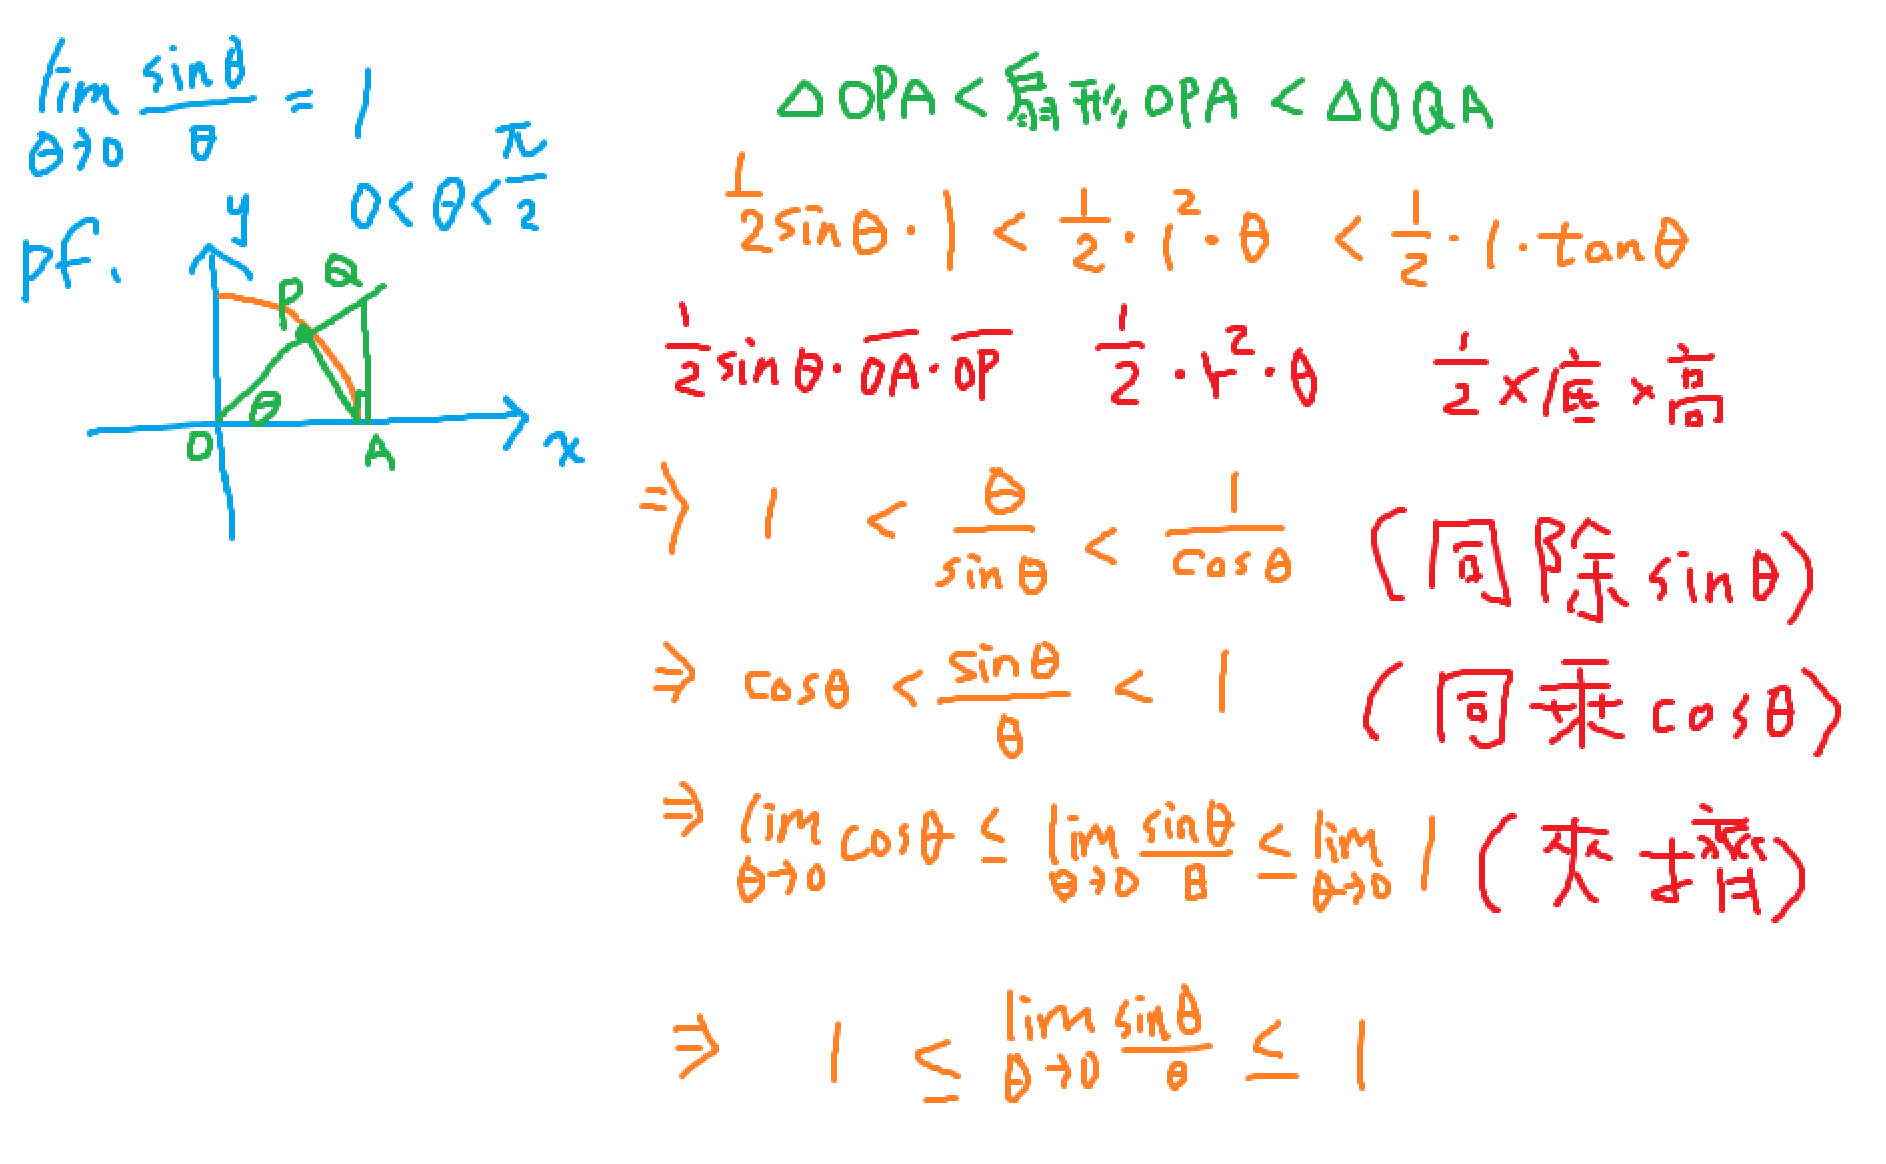 lim sinθ/θ = 1
θ→0
0<θ<π/2
pf.
y
P Q
θ
O A x
△OPA < 扇形OPA < △OQA
1/2 sinθ·1 < 1/2·1²·θ < 1/2·1·tanθ
1/2 sinθ·O̅A̅·O̅P̅ 1/2·r²·θ 1/2×底×高
⇒ 1 < θ/sinθ < 1/cosθ (同除sinθ)
⇒ cosθ < sinθ/θ < 1 (同乘cosθ)
⇒ lim cosθ ≤ lim sinθ/θ ≤ lim 1 (夾擠)
θ→0 θ→0 θ→0
⇒ 1 ≤ lim sinθ/θ ≤ 1
θ→0